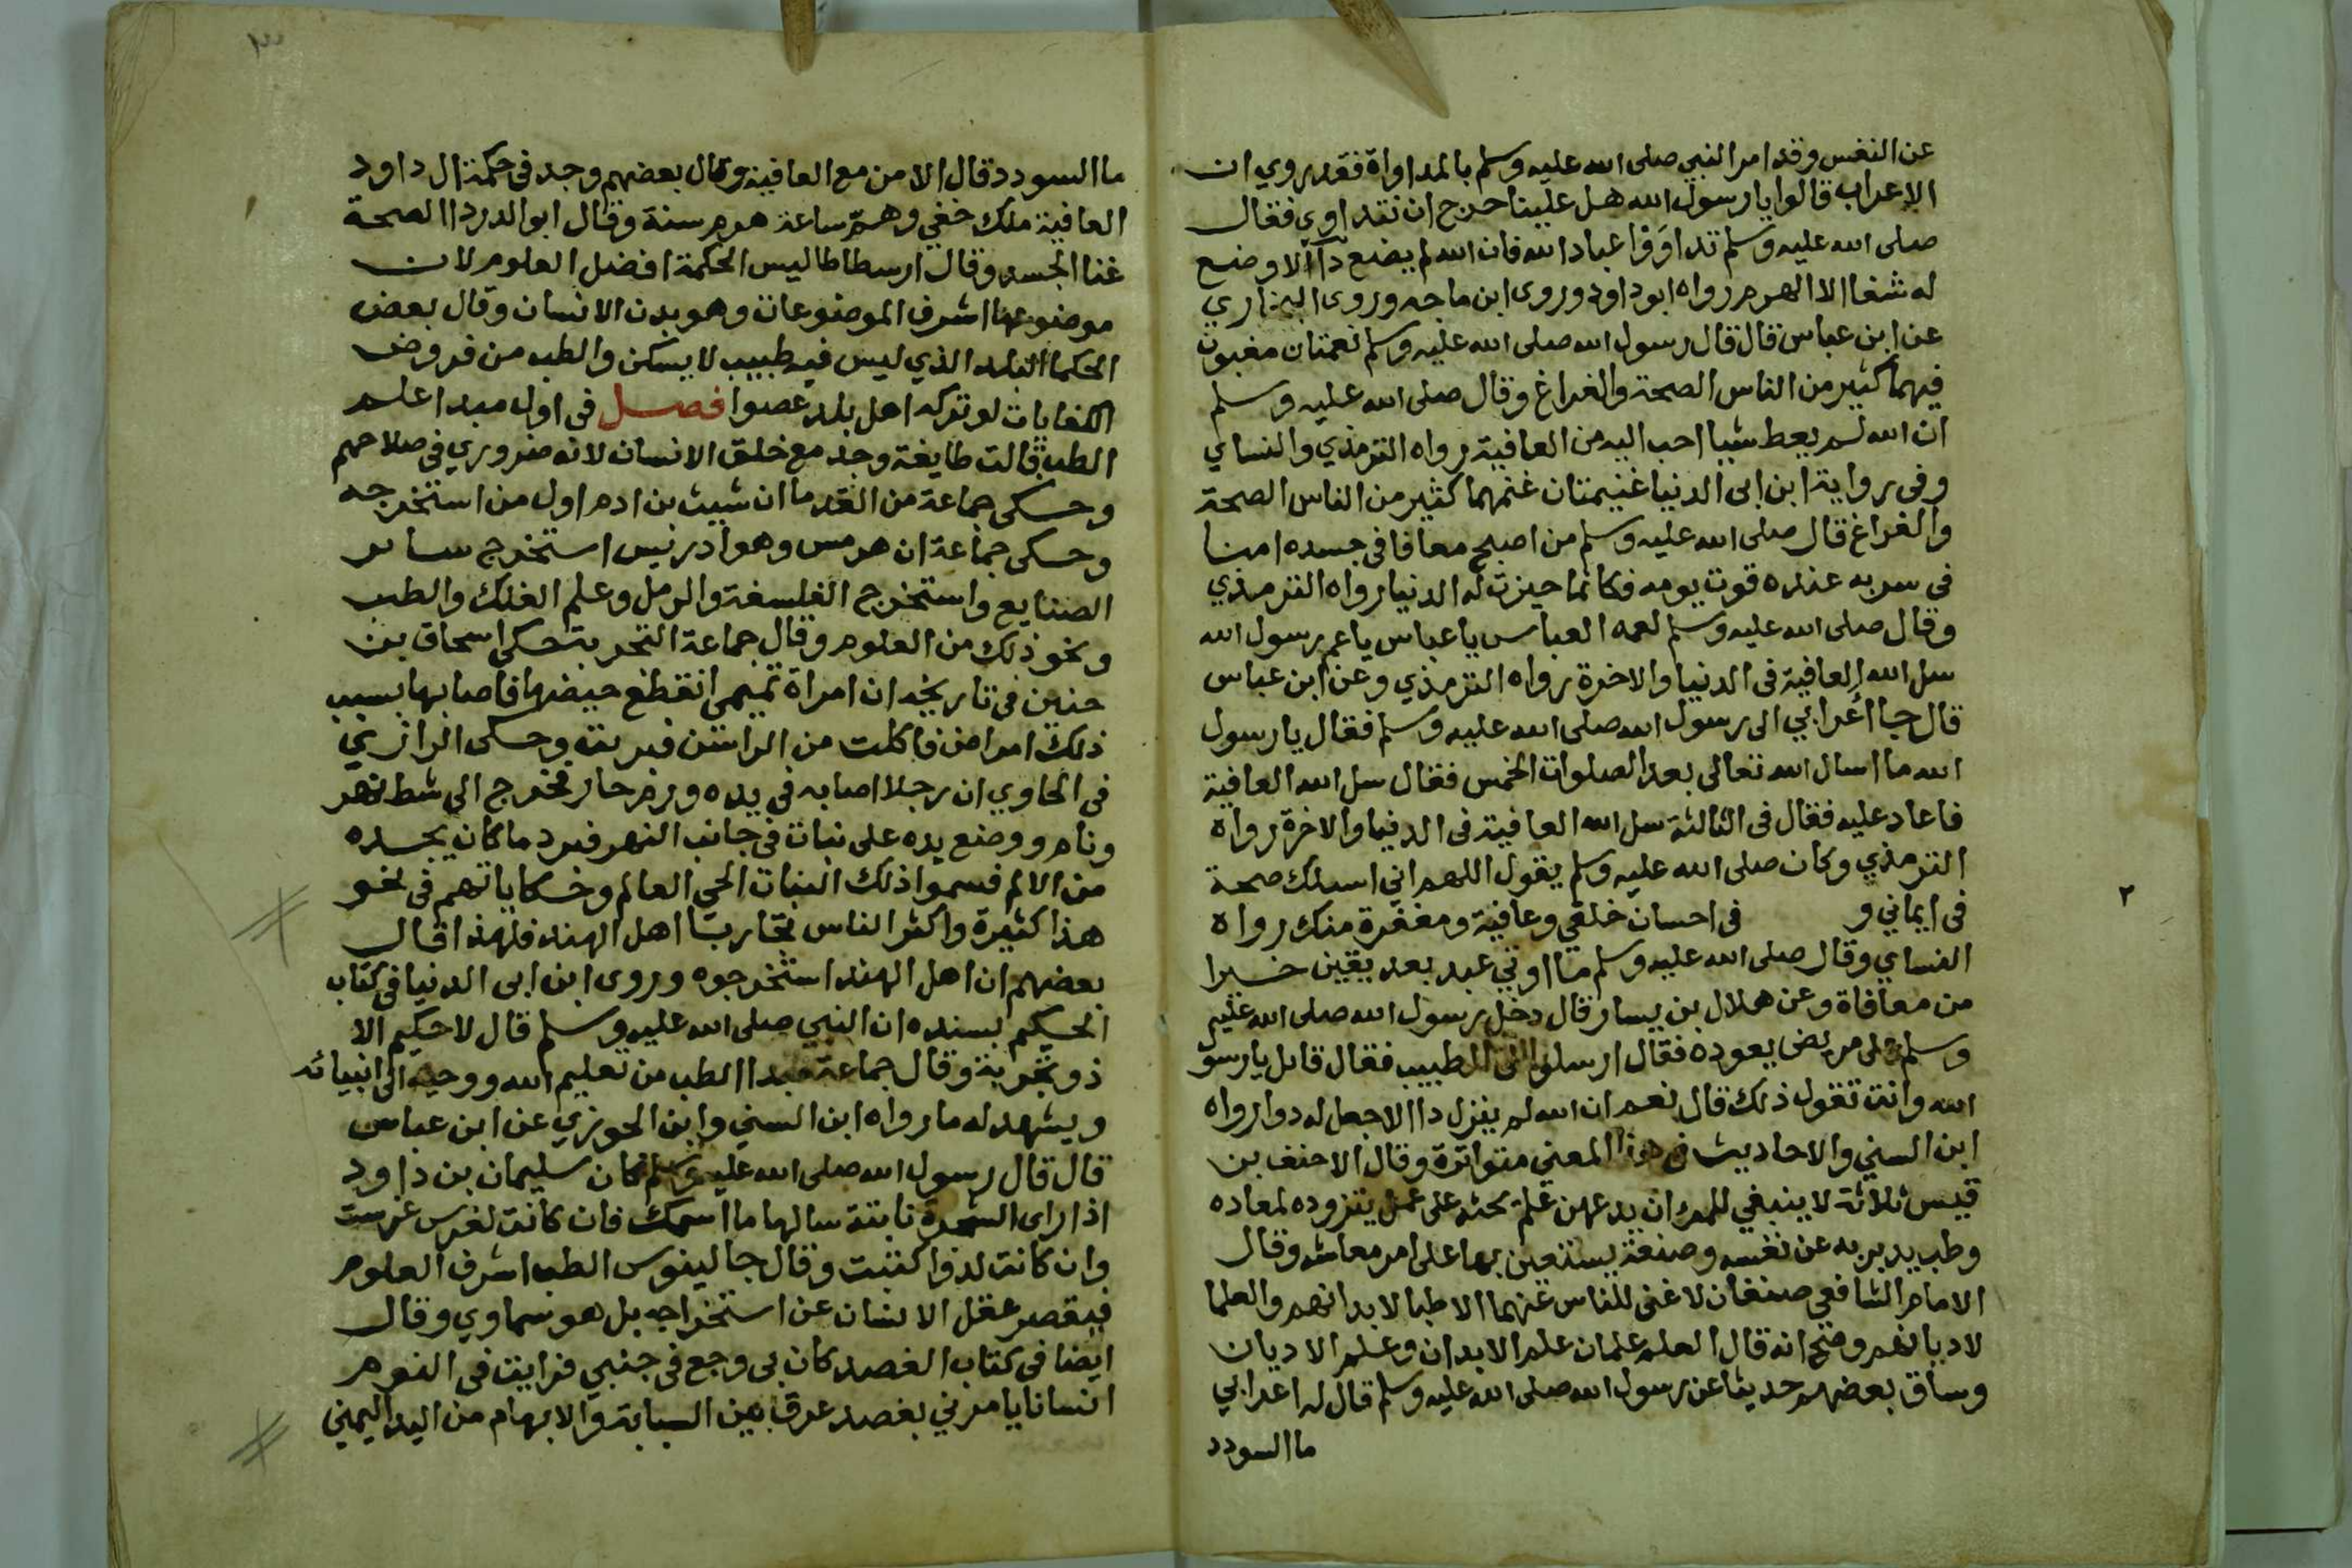 عن النفس وقد امر النبي صلى الله عليه وسلم بالمداواة فقد روي ان
الاعراب قالوا يا رسول الله هل علينا حرج ان نتداوي فقال
صلى الله عليه وسلم تداووا عباد الله فان الله لم يضع دآ الا وضع
له شفا الا الهرم رواه ابو داود وروى ابن ماجه وروى البخاري
عن ابن عباس قال قال رسول الله صلى الله عليه وسلم نعمتان مغبون
فيهما كثير من الناس الصحة والفراغ وقال صلى الله عليه وسلم
ان الله لم يعط شيا احب اليه من العافية رواه الترمذي والنساي
وفي رواية ابن ابى الدنيا غنيمتان غنمهما كثير من الناس الصحة
والفراغ قال صلى الله عليه وسلم من اصبح معافا في جسده امنا
في سربه عنده قوت يومه فكانما حيزت له الدنيا رواه الترمذي
وقال صلى الله عليه وسلم لعمه العباس يا عباس يا عم رسول الله
سل الله العافية فى الدنيا والاخرة رواه الترمذي وعن ابن عباس
قال جا اعرابي الى رسول الله صلى الله عليه وسلم فقال يا رسول
الله ما اسال الله تعالى بعد الصلوات الخمس فقال سل الله العافية
فاعاد عليه فقال فى الثالثة سل الله العافية فى الدنيا والاخرة رواه
الترمذي وكان صلى الله عليه وسلم يقول اللهم اني اسلك صحة
فى ايماني و فى احسان خلقي وعافية ومغفرة منك رواه
النساي وقال صلى الله عليه وسلم ما اوتي عبد بعد يقين خيرا
من معافاة وعن هلال بن يسار قال دخل رسول الله صلى الله عليه
وسلم على مريض يعوده فقال ارسلوا الى الطبيب فقال قايل يا رسو
الله وانت تقول ذلك قال نعم ان الله لم ينزل دا الا جعل له دوا رواه
ابن السني والاحاديث في هذا المعني متواترة وقال الاحنف بن
قيس ثلاثة لا ينبغي للمرء ان يدعهن علم يحثه على عمل يتزوده لمعاده
وطب يدبر به عن نفسه وصنعة يستعين بها على امر معاشه وقال
الامام الشافعي صنفان لا غنى للناس عنهما الاطبا لابدانهم والعلما
لاديانهم وصح انه قال العلم علمان علم الابدان وعلم الاديان
وساق بعضهم حديثا عن رسول الله صلى الله عليه وسلم قال له اعرابي
ما السودد
٢
٣
ما السودد قال الامن مع العافية وقال بعضهم وجد في حكمة ال داود
العافية ملك خفي وهم ساعة هرم سنة وقال ابو الدردا الصحة
غنا الجسد وقال ارسطاطاليس الحكمة افضل العلوم لان
موضوعها اشرف الموضوعات وهو بدن الانسان وقال بعض
الحكما البلد الذي ليس فيه طبيب لا يسكن والطب من فروض
الكفايات لو تركه اهل بلد عصوا فصل فى اول مبدا علم
الطب قالت طايفة وجد مع خلق الانسان لانه ضروري في صلاحهم
وحكى جماعة من القدما ان شيث بن ادم اول من استخرجه
وحكى جماعة ان هرمس وهو ادريس استخرج ساير
الصنايع واستخرج الفلسفة والرمل وعلم الفلك والطب
ونحو ذلك من العلوم وقال جماعة التجربة حكى اسحاق بن
حنين فى تاريخه ان امراة انقطع حيضها فاصابها بسبب
ذلك امراض فاكلت من الراسن فبريت وحكى الرازي
في الحاوي ان رجلا اصابه في يده ورم حار فخرج الى شط نهر
ونام ووضع يده على نبات في جانب النهر فبرد ما كان بجسده
من الالم فسموا ذلك النبات الحي العالم وحكاياتهم في نحو
هذا كثيرة واكثر الناس تجاربا اهل الهند فلهذا قال
بعضهم ان اهل الهند استخرجوه وروى ابن ابى الدنيا في كتاب
الحكيم بسنده ان النبي صلى الله عليه وسلم قال لا حكيم الا
ذو تجربة وقال جماعة مبدا الطب من تعليم الله ووحيه الى انبيائه
ويشهد له ما رواه ابن السني وابن الجوزي عن ابن عباس
قال قال رسول الله صلى الله عليه وسلم كان سليمان بن داود
اذا راى الشجرة نابتة سالها ما اسمك فان كانت لغرس غرست
وان كانت لدوا كتبت وقال جالينوس الطب اشرف العلوم
فيقصر عقل الانسان عن استخراجه بل هو سماوي وقال
ايضا في كتاب الفصد كان بى وجع في جنبي فرايت فى النوم
انسانا يامرني بفصد عرق بين السبابة والابهام من اليد اليمني